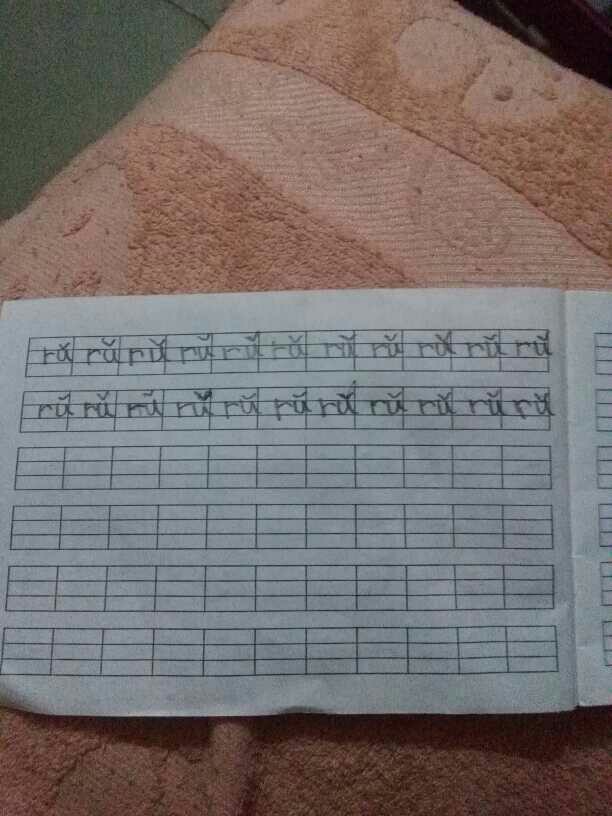 rǔ rǔ rǔ rǔ rǔ rǔ rǔ rǔ rǔ rǔ rǔ
rǔ rǔ rǔ rǔ rǔ rǔ rǔ rǔ rǔ rǔ rǔ